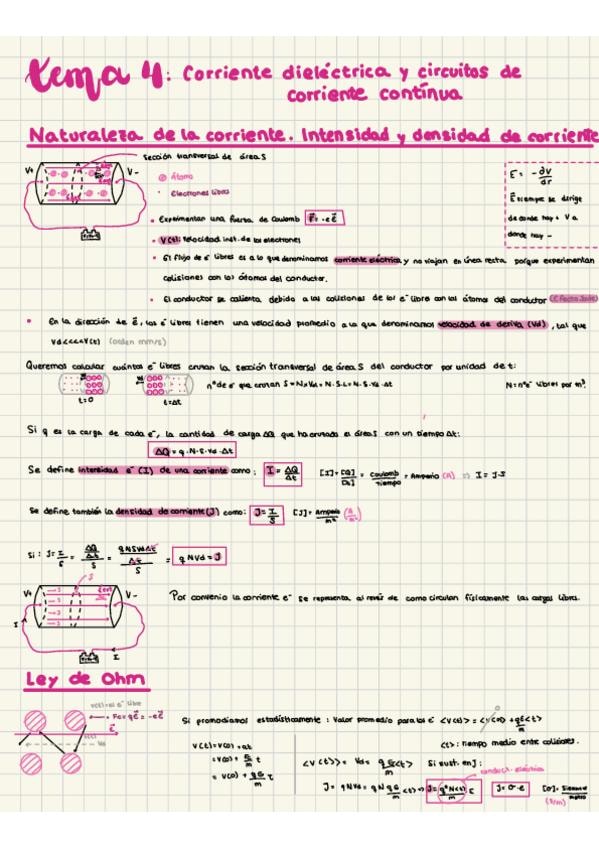 tema 4: Corriente dieléctrica y circuitos de
corriente contínua
Naturaleza de la corriente. Intensidad y densidad de corriente
Sección transversal de área S
V+
V-
Átomo
Electrones libres
E = -∂V/dr
E siempre se dirige
de donde hay + V a
donde hay -
• Experimentan una fuerza de Coulomb F = -eE
• V(t): Velocidad inst. de los electrones
• El flujo de e⁻ libres es a lo que denominamos corriente eléctrica y no viajan en línea recta porque experimentan
colisiones con los átomos del conductor.
• El conductor se calienta debido a las colisiones de los e⁻ libre con los átomos del conductor (Efecto Joule)
• En la dirección de E, los e⁻ libres tienen una velocidad promedio a la que denominamos velocidad de deriva (Vd), tal que
Vd<<<<V(t) (orden mm/s)
Queremos calcular cuántos e⁻ libres cruzan la sección transversal de área S del conductor por unidad de t:
nº de e⁻ que cruzan S = N·V = N·S·L = N·S·Vd·Δt
N = nº e⁻ libres por m³
t=0
t=Δt
Si q es la carga de cada e⁻, la cantidad de carga ΔQ que ha cruzado el área S con un tiempo Δt:
ΔQ = q·N·S·Vd·Δt
Se define intensidad e⁻ (I) de una corriente como: I = ΔQ/Δt [I] = Coulomb/tiempo = Amperio (A) ⇒ I = J·S
Se define también la densidad de corriente (J) como: J = I/S [J] = Amperio/m² (A/m²)
Si: J = I/S = (ΔQ/Δt)/S = (qNSVdΔt/Δt)/S = qNVd = J
S
V+
V-
I
I
Por convenio la corriente e⁻ se representa al revés de como circulan físicamente las cargas libres.
Ley de Ohm
V(t) = el e⁻ libre
Fe = qE = -eE
E
Vd
Si promediamos estadísticamente: Valor promedio para los e⁻ <V(t)> = <V(0)> + qE<t>/m
<t>: tiempo medio entre colisiones.
V(t) = V(0) + at
= V(0) + F/m t
= V(0) + qE/m t
<V(t)> = Vd = qE<t>/m
Si sust. en J:
conduct. eléctrica
J = qNVd = qN qE/m <t> ⇒ J = q²N<t>/m E
J = σ·E
[σ] = Siemens/metro
(S/m)